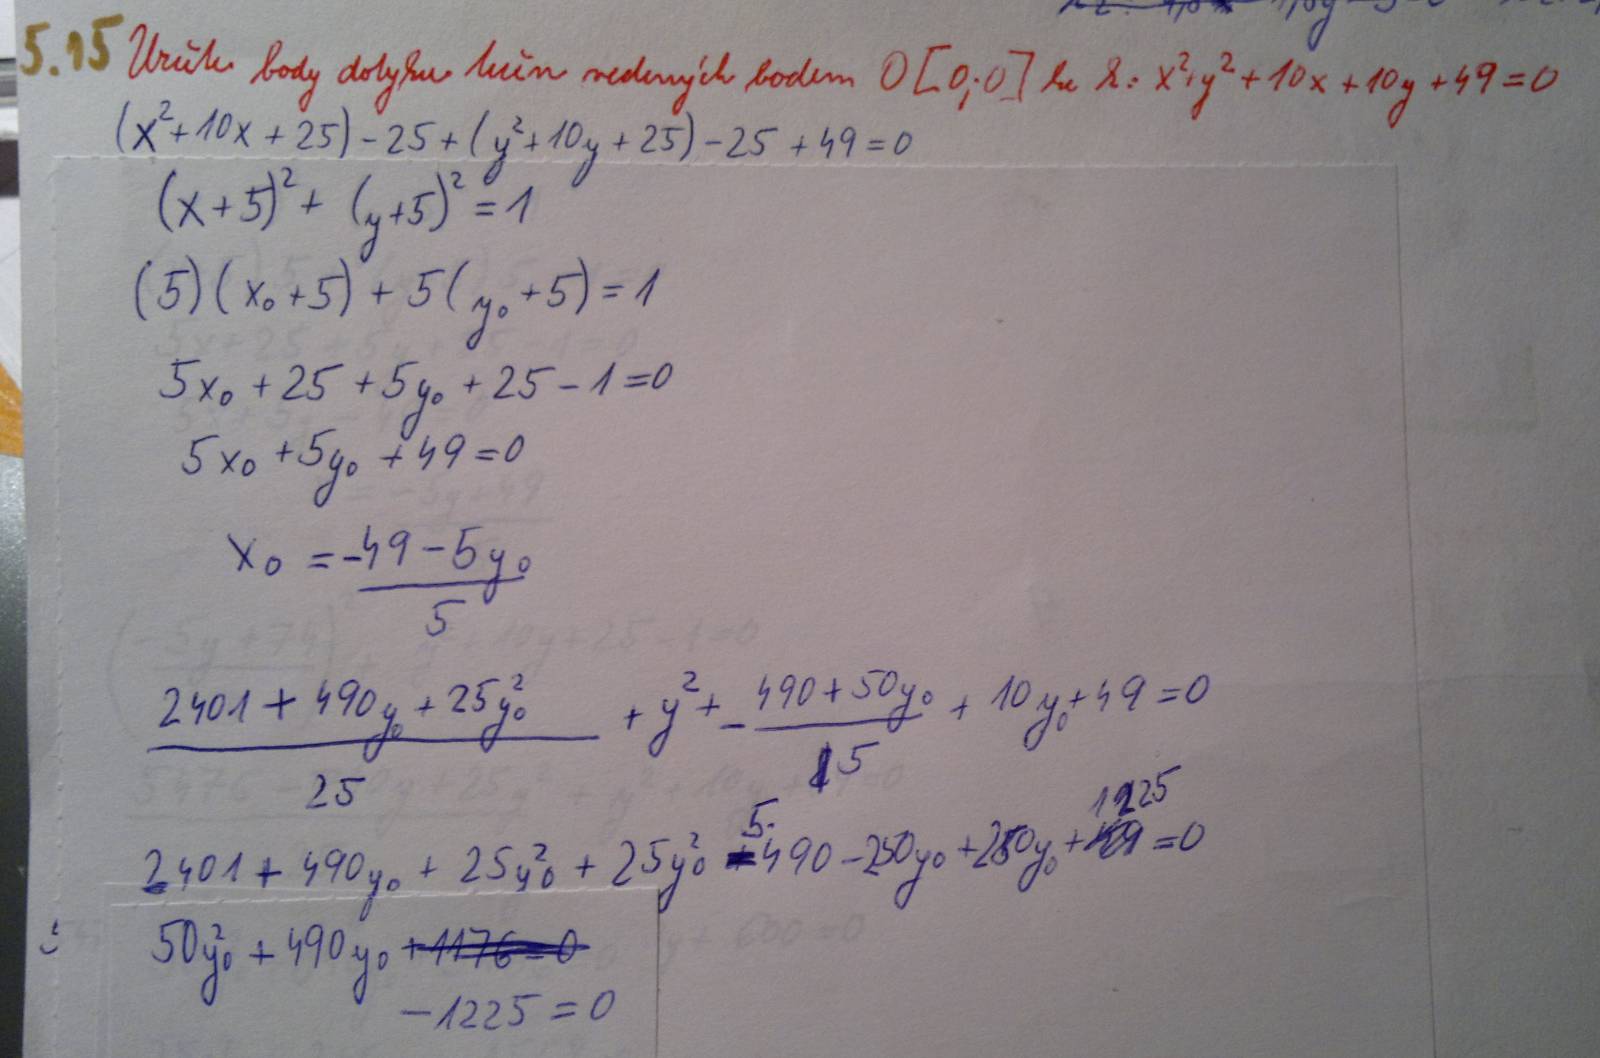 5.15 Určete body dotyku tečen vedených bodem O[0;0] ke k: x²+y²+10x+10y+49=0
(x²+10x+25)-25+(y²+10y+25)-25+49=0
(x+5)²+(y+5)²=1
(5)(x₀+5)+5(y₀+5)=1
5x₀+25+5y₀+25-1=0
5x₀+5y₀+49=0
x₀=-49-5y₀
5
2401+490y₀+25y₀² +y²+-490+50y₀+10y₀+49=0
25 5
5. 1225
2401+490y₀+25y₀²+25y₀²-490-250y₀+250y₀+=0
50y₀²+490y₀+1176=0
-1225=0